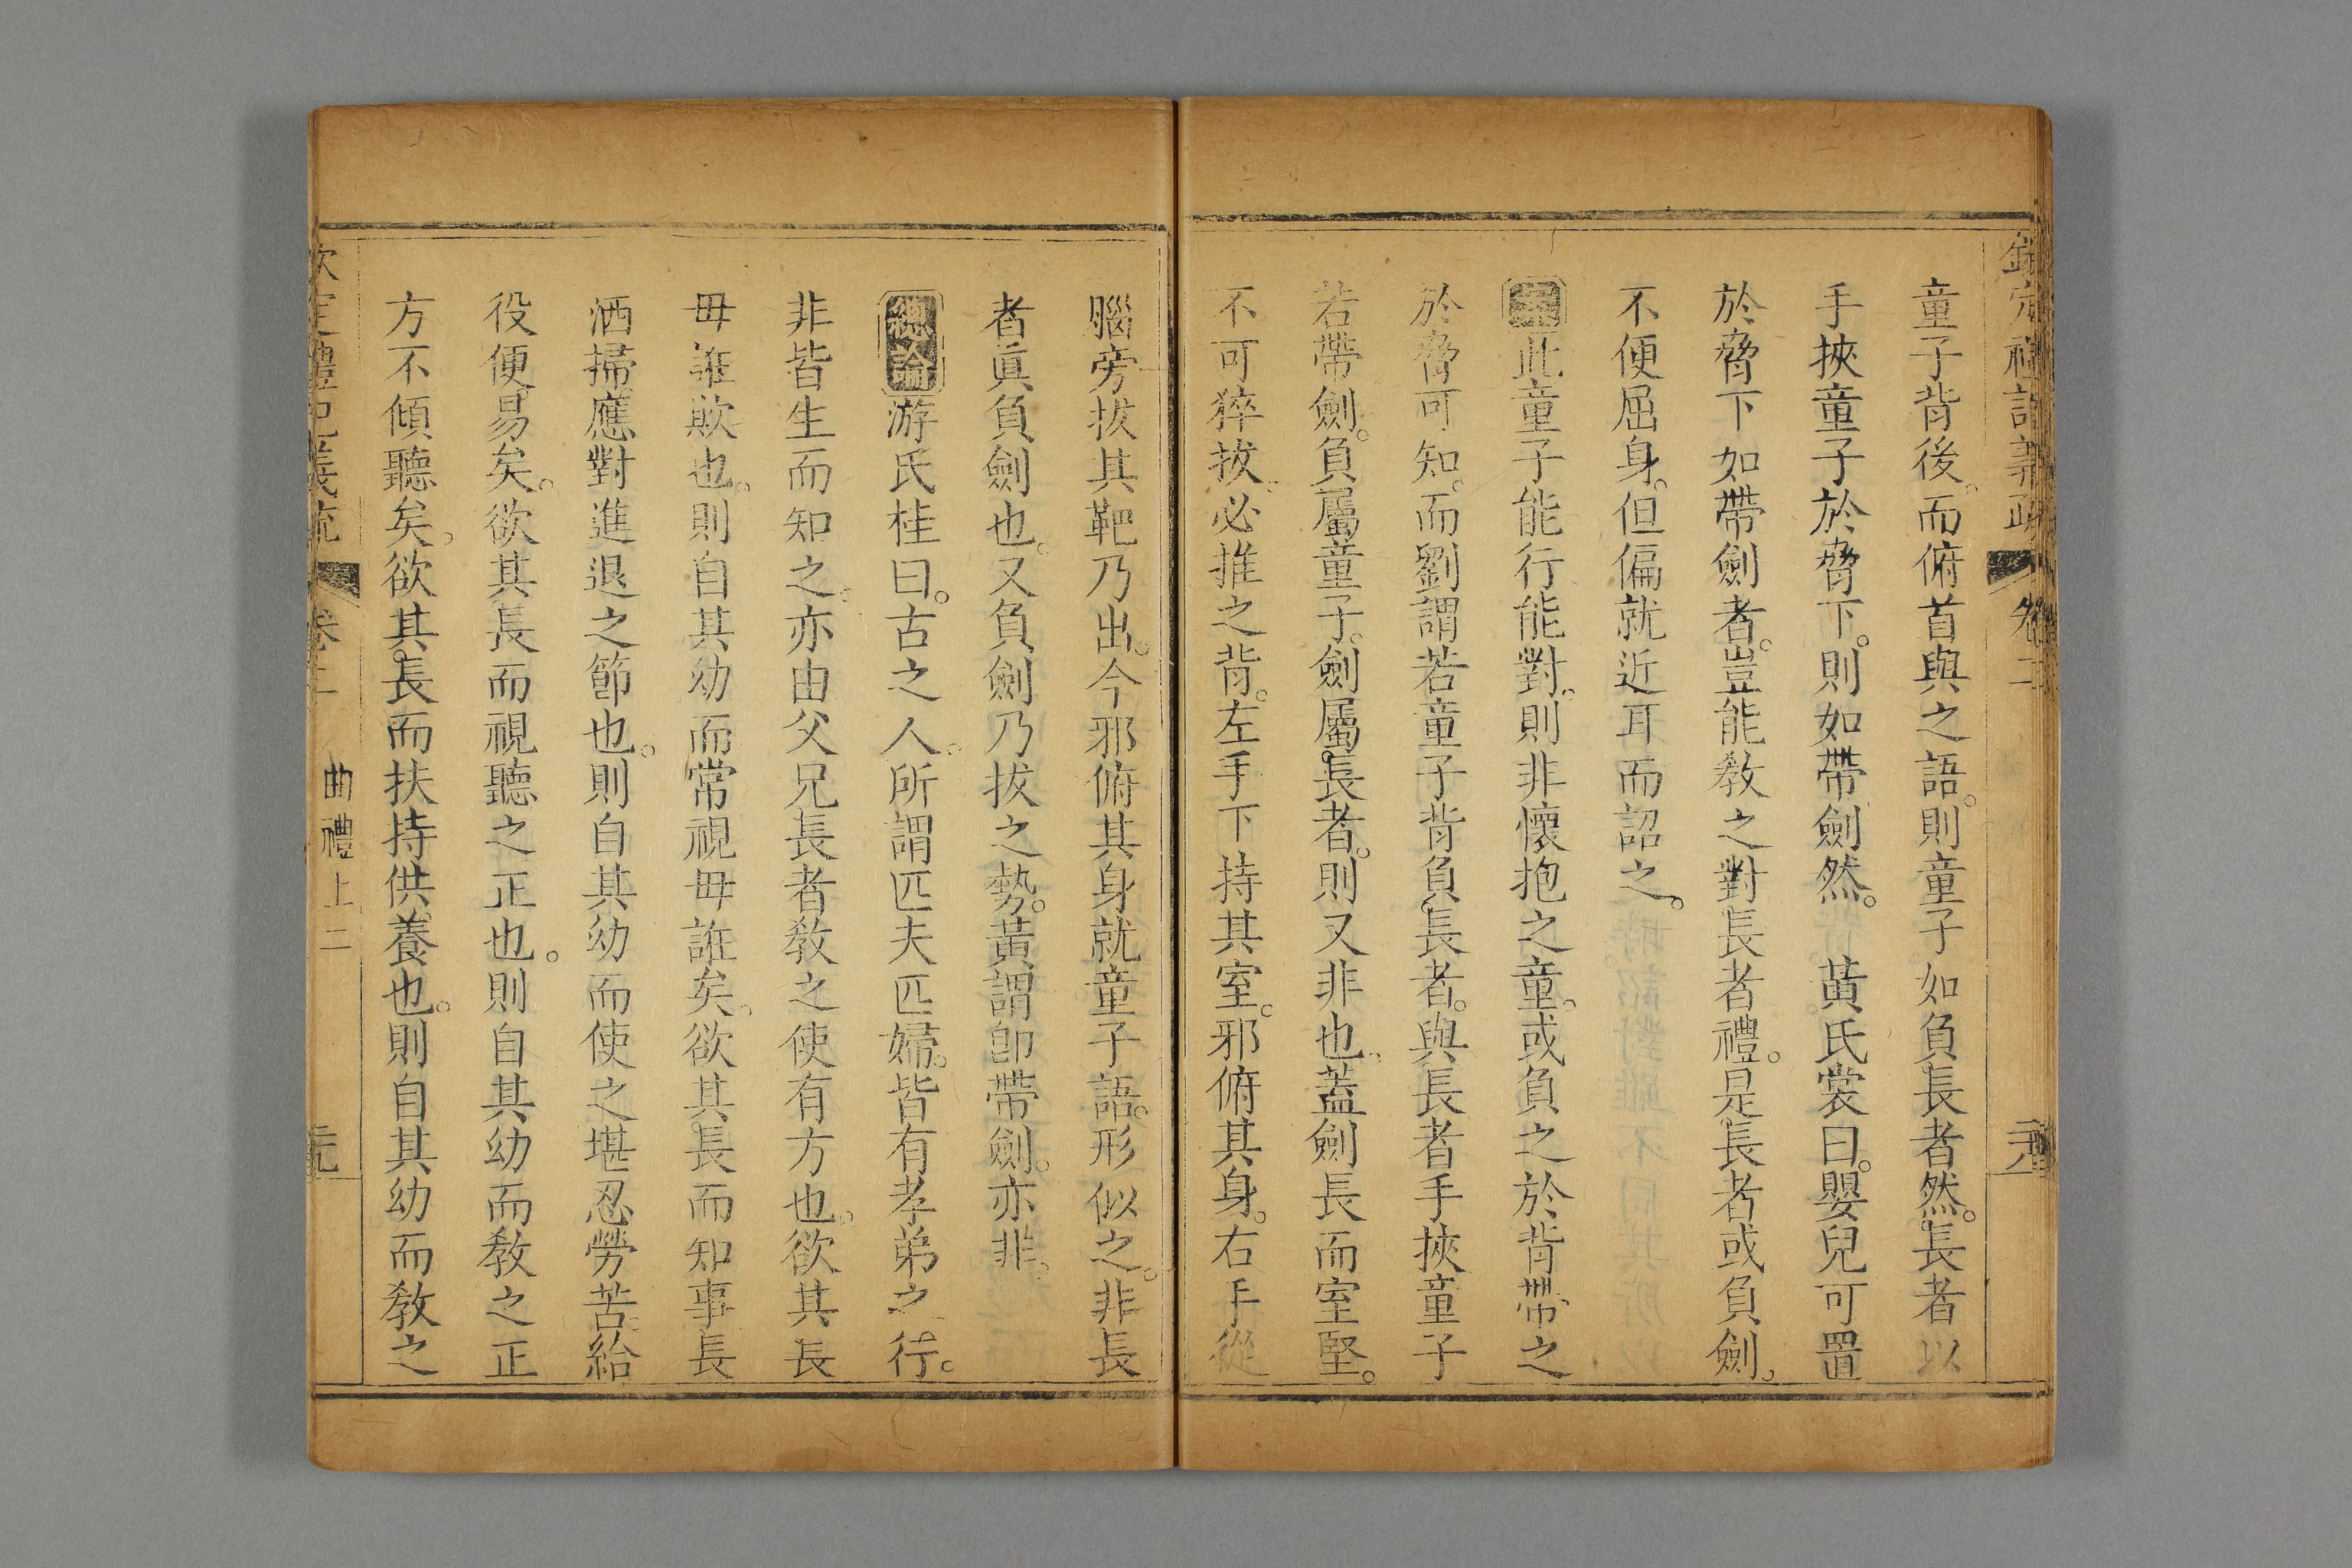 童子背後。而俯首與之語。則童子如負長者然。長者以
手挾童子於脅下。則如帶劍然。　黃氏裳曰。嬰兒可置
於脅下如帶劍者。豈能教之對長者禮。是長者或負劍。
不便屈身。但偏就近耳而詔之。
此童子能行能對。則非懷抱之童。或負之於背帶之
於脅可知。而劉謂若童子背負長者。與長者手挾童子
若帶劍。負屬童子。劍屬長者。則又非也。蓋劍長而室堅。
不可猝拔。必推之背。左手下持其室。邪俯其身。右手從
腦旁拔其靶乃出。今邪俯其身就童子語。形似之。非長
者眞負劍也。又負劍乃拔之勢。黃謂卽帶劍。亦非。
總論游氏桂曰。古之人。所謂匹夫匹婦。皆有孝弟之行。
非皆生而知之。亦由父兄長者教之使有方也。欲其長
毋誑欺也。則自其幼而常視毋誑矣。欲其長而知事長
洒掃應對進退之節也。則自其幼而使之堪忍勞苦。給
役便易矣。欲其長而視聽之正也。則自其幼而教之正
方不傾聽矣。欲其長而扶持供養也。則自其幼而教之
欽定禮記義疏　卷二　曲禮上二